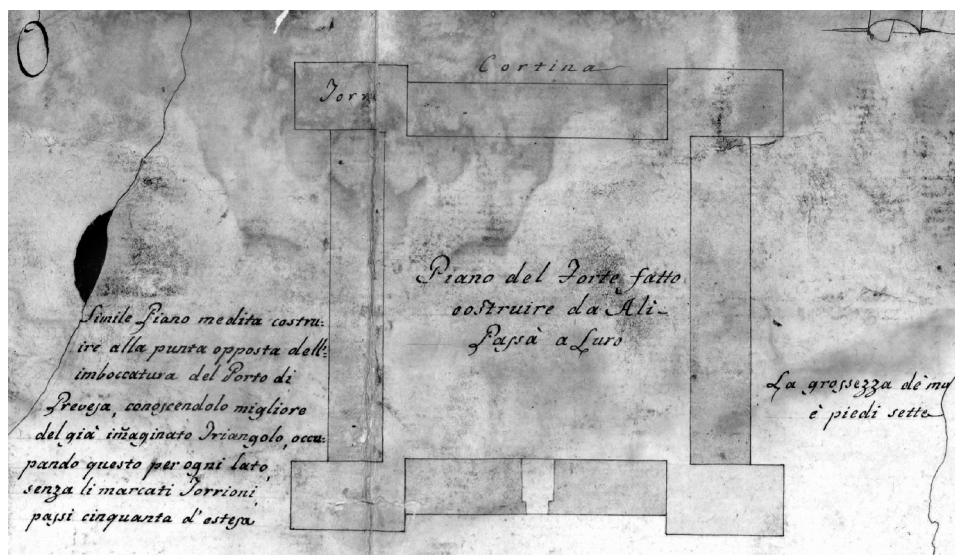 O
Cortina
Torr
Piano del Forte fatto
costruire da Ali
Passà a Luro
Simile Piano medita costru:
ire alla punta opposta dell':
imboccatura del Porto di
Prevesa, conoscendolo migliore
del già imaginato Triangolo, occu:
pando questo per ogni lato,
senza li marcati Torrioni,
passi cinquanta d'estesa
La grossezza de' mu
è piedi sette